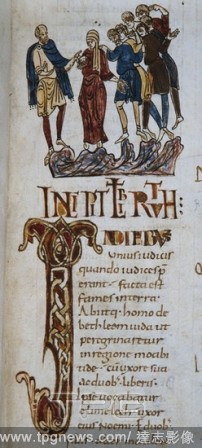 INCIPIT LIBER RUTH:
IN DIEBUS
unius iudicis
quando iudices p
erant · facta est
fames in terra ·
Abiitq; homo de
bethleem iuda ut
peregrinaretur
in regione moabi
tide · cū uxore sua
ac duob; liberis ·
Ipse vocabatur
elimelech · uxor
eius Noemi · & duob;
www.tpgnews.com 達志影像